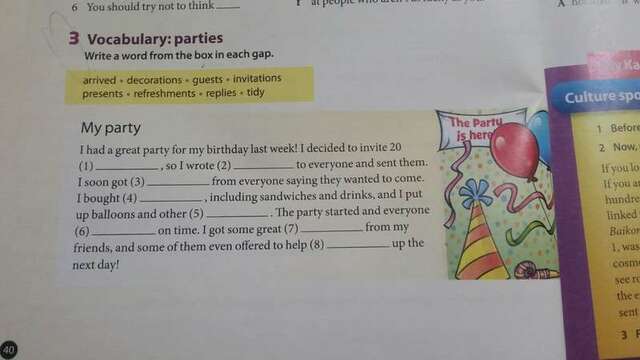 6 You should try not to think ____
at people who aren't as lucky as you.
A
3 Vocabulary: parties
Write a word from the box in each gap.
arrived • decorations • guests • invitations
presents • refreshments • replies • tidy
My party
I had a great party for my birthday last week! I decided to invite 20
(1) ____, so I wrote (2) ____ to everyone and sent them.
I soon got (3) ____ from everyone saying they wanted to come.
I bought (4) ____, including sandwiches and drinks, and I put
up balloons and other (5) ____. The party started and everyone
(6) ____ on time. I got some great (7) ____ from my
friends, and some of them even offered to help (8) ____ up the
next day!
The Party
is here
40
Culture spo
1 Before
2 Now,
If you lo
If you a
hundre
linked
Baikon
1, was
cosm
see re
the e
sent
3